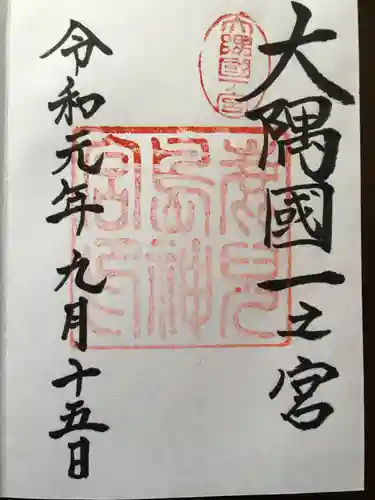 大隅國一之宮
大隅國一宮
令和元年九月十五日